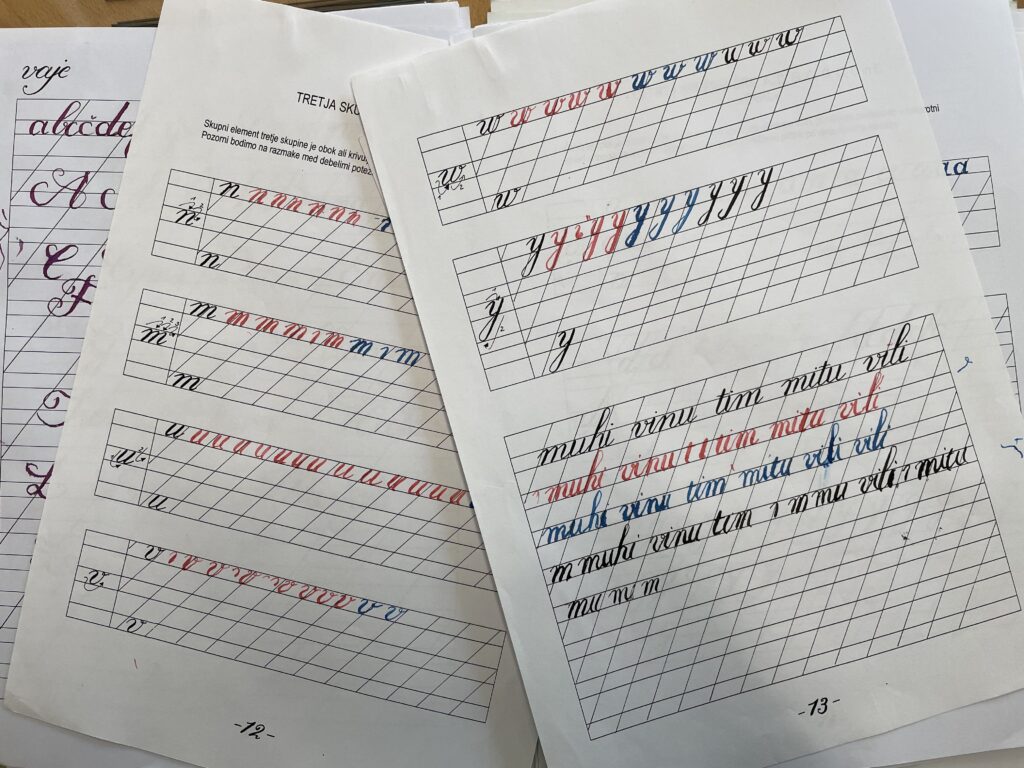 vaje
abcčde
A
C
F
L
TRETJA SKU
Skupni element tretje skupine je obok ali krivu
Pozorni bodimo na razmake med debelimi potez
n n u u u u u u
n
n
m m m m m ı m m ı ı m
m
m
u u u u u u u u u u u u u
u
u
v
v
v
-12-
w w w w w w w w w w w
w
w
y y y y y y y y y y y
y
y
muhi vinu tim mitu vili
muhi vinu t ı tim mitu vili
muhi vinu tim mitu vili vili
m muhi vinu tim ı m mu vili ı mitu
mu m m
-13-
rotni
a a